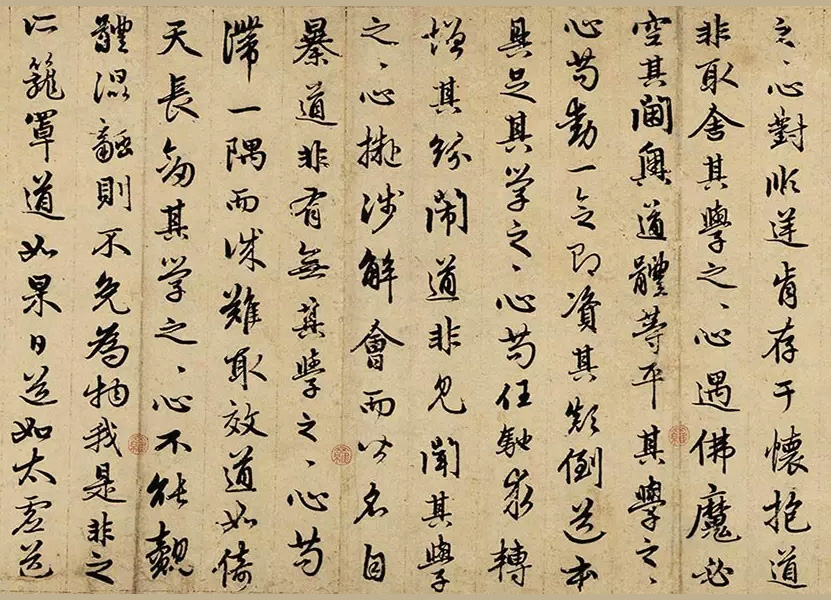 之、心對順逆肯存于懷抱道
非取舍其學之、心遇佛魔必
空其閫奧道體等平其學之、
心苟動一念即資其顛倒道本
具足其学之、心苟任馳求轉
增其紛鬧道非見聞其學
之、心擬涉解會而以名目
暴道非有無其學之、心苟
滯一隅而誠難取效道如倚
天長劒其学之、心不能覿
體混融則不免為物我是非之
所籠罩道如杲日道如太虛道